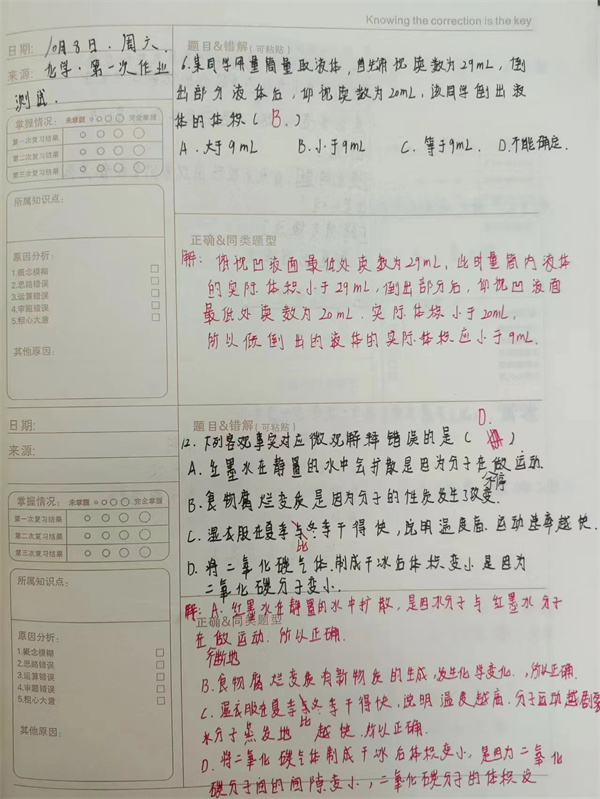 Knowing the correction is the key
日期: 10月8日.周六.
来源: 化学.第一次作业
测试.
掌握情况: 未掌握 完全掌握
第一次复习结果
第二次复习结果
第三次复习结果
所属知识点:
原因分析:
1.概念模糊
2.思路错误
3.运算错误
4.审题错误
5.粗心大意
其他原因:
题目&错解(可粘贴)
6.某同学用量筒量取液体,首先俯视读数为29mL,倒
出部分液体后,仰视读数为20mL,该同学倒出液
体的体积( B. )
A.大于9mL B.小于9mL C.等于9mL. D.不能确定.
正确&同类题型
解: 俯视凹液面最低处读数为29mL,此时量筒内液体
的实际体积小于29mL,倒出部分后,仰视凹液面
最低处读数为20mL.实际体积小于20mL.
所以倒出的液体的实际体积应小于9mL.
日期:
来源:
掌握情况: 未掌握 完全掌握
第一次复习结果
第二次复习结果
第三次复习结果
所属知识点:
原因分析:
1.概念模糊
2.思路错误
3.运算错误
4.审题错误
5.粗心大意
其他原因:
题目&错解(可粘贴)
D.
12.下列客观事实对应微观解释错误的是( )
A.红墨水在静置的水中会扩散是因为分子在做运动.
B.食物腐烂变质是因为分子的性质发生了改变.
C.湿衣服在夏季比冬季干得快,说明温度高.运动速率越快.
D.将二氧化碳气体.制成干冰后体积变小是因为
二氧化碳分子变小.
正确&同类题型
解:A.红墨水在静置的水中扩散,是因水分子与红墨水分子
在不断地做运动.所以正确.
B.食物腐烂变质有新物质的生成,发生化学变化.,所以正确.
C.湿衣服在夏季比冬季干得快,说明温度越高.分子运动越剧烈
水分子蒸发地越快.所以正确.
D.将二氧化碳气体制成干冰后体积变小,是因为二氧化
碳分子间的间隙变小,二氧化碳分子的体积没